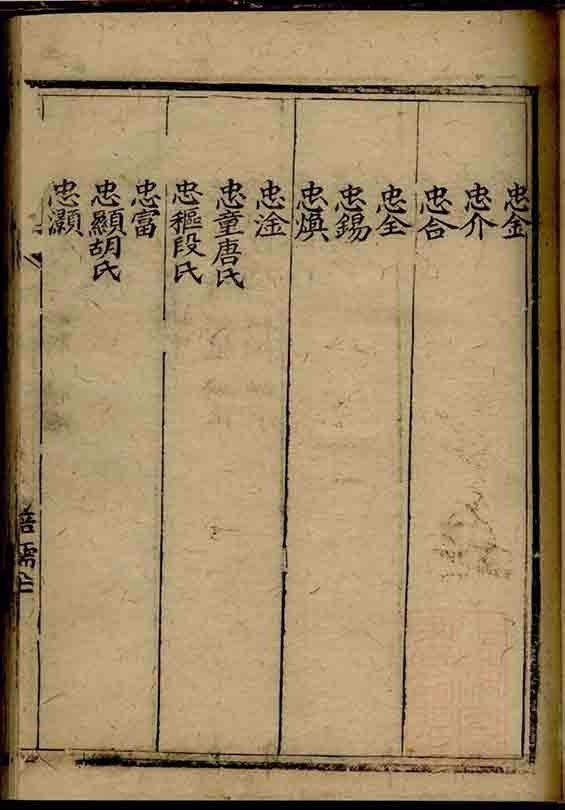 忠金
忠介
忠合
忠全
忠錫
忠煥
忠淦
忠童唐氏
忠樞段氏
忠富
忠顯胡氏
忠灝